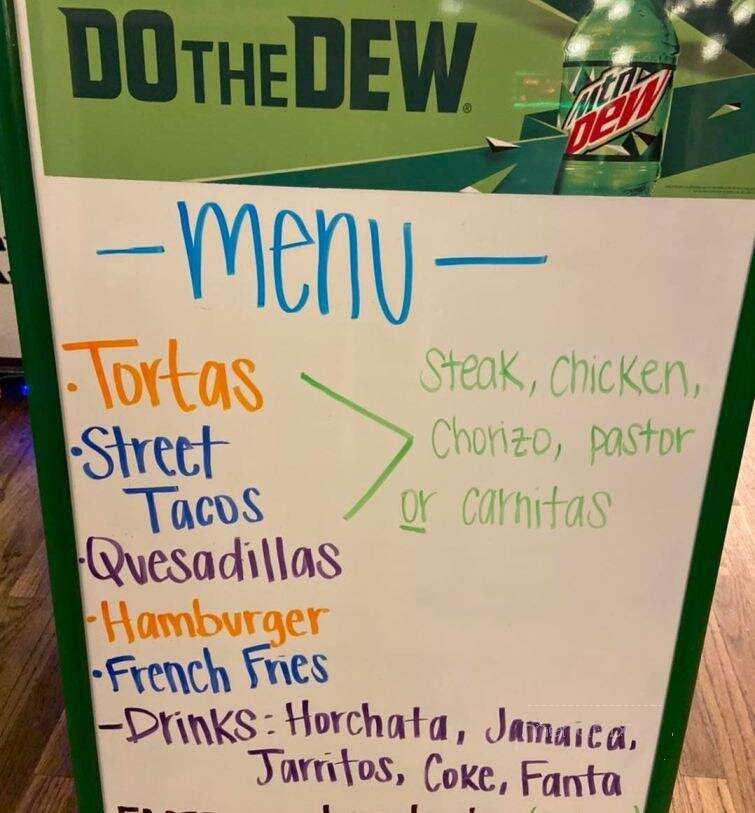 DO THE DEW®
mtn
DEW
- Menu -
• Tortas
Steak, Chicken,
Chorizo, pastor
or carnitas
• Street
Tacos
• Quesadillas
• Hamburger
• French Fries
- Drinks: Horchata, Jamaica,
Jarritos, Coke, Fanta